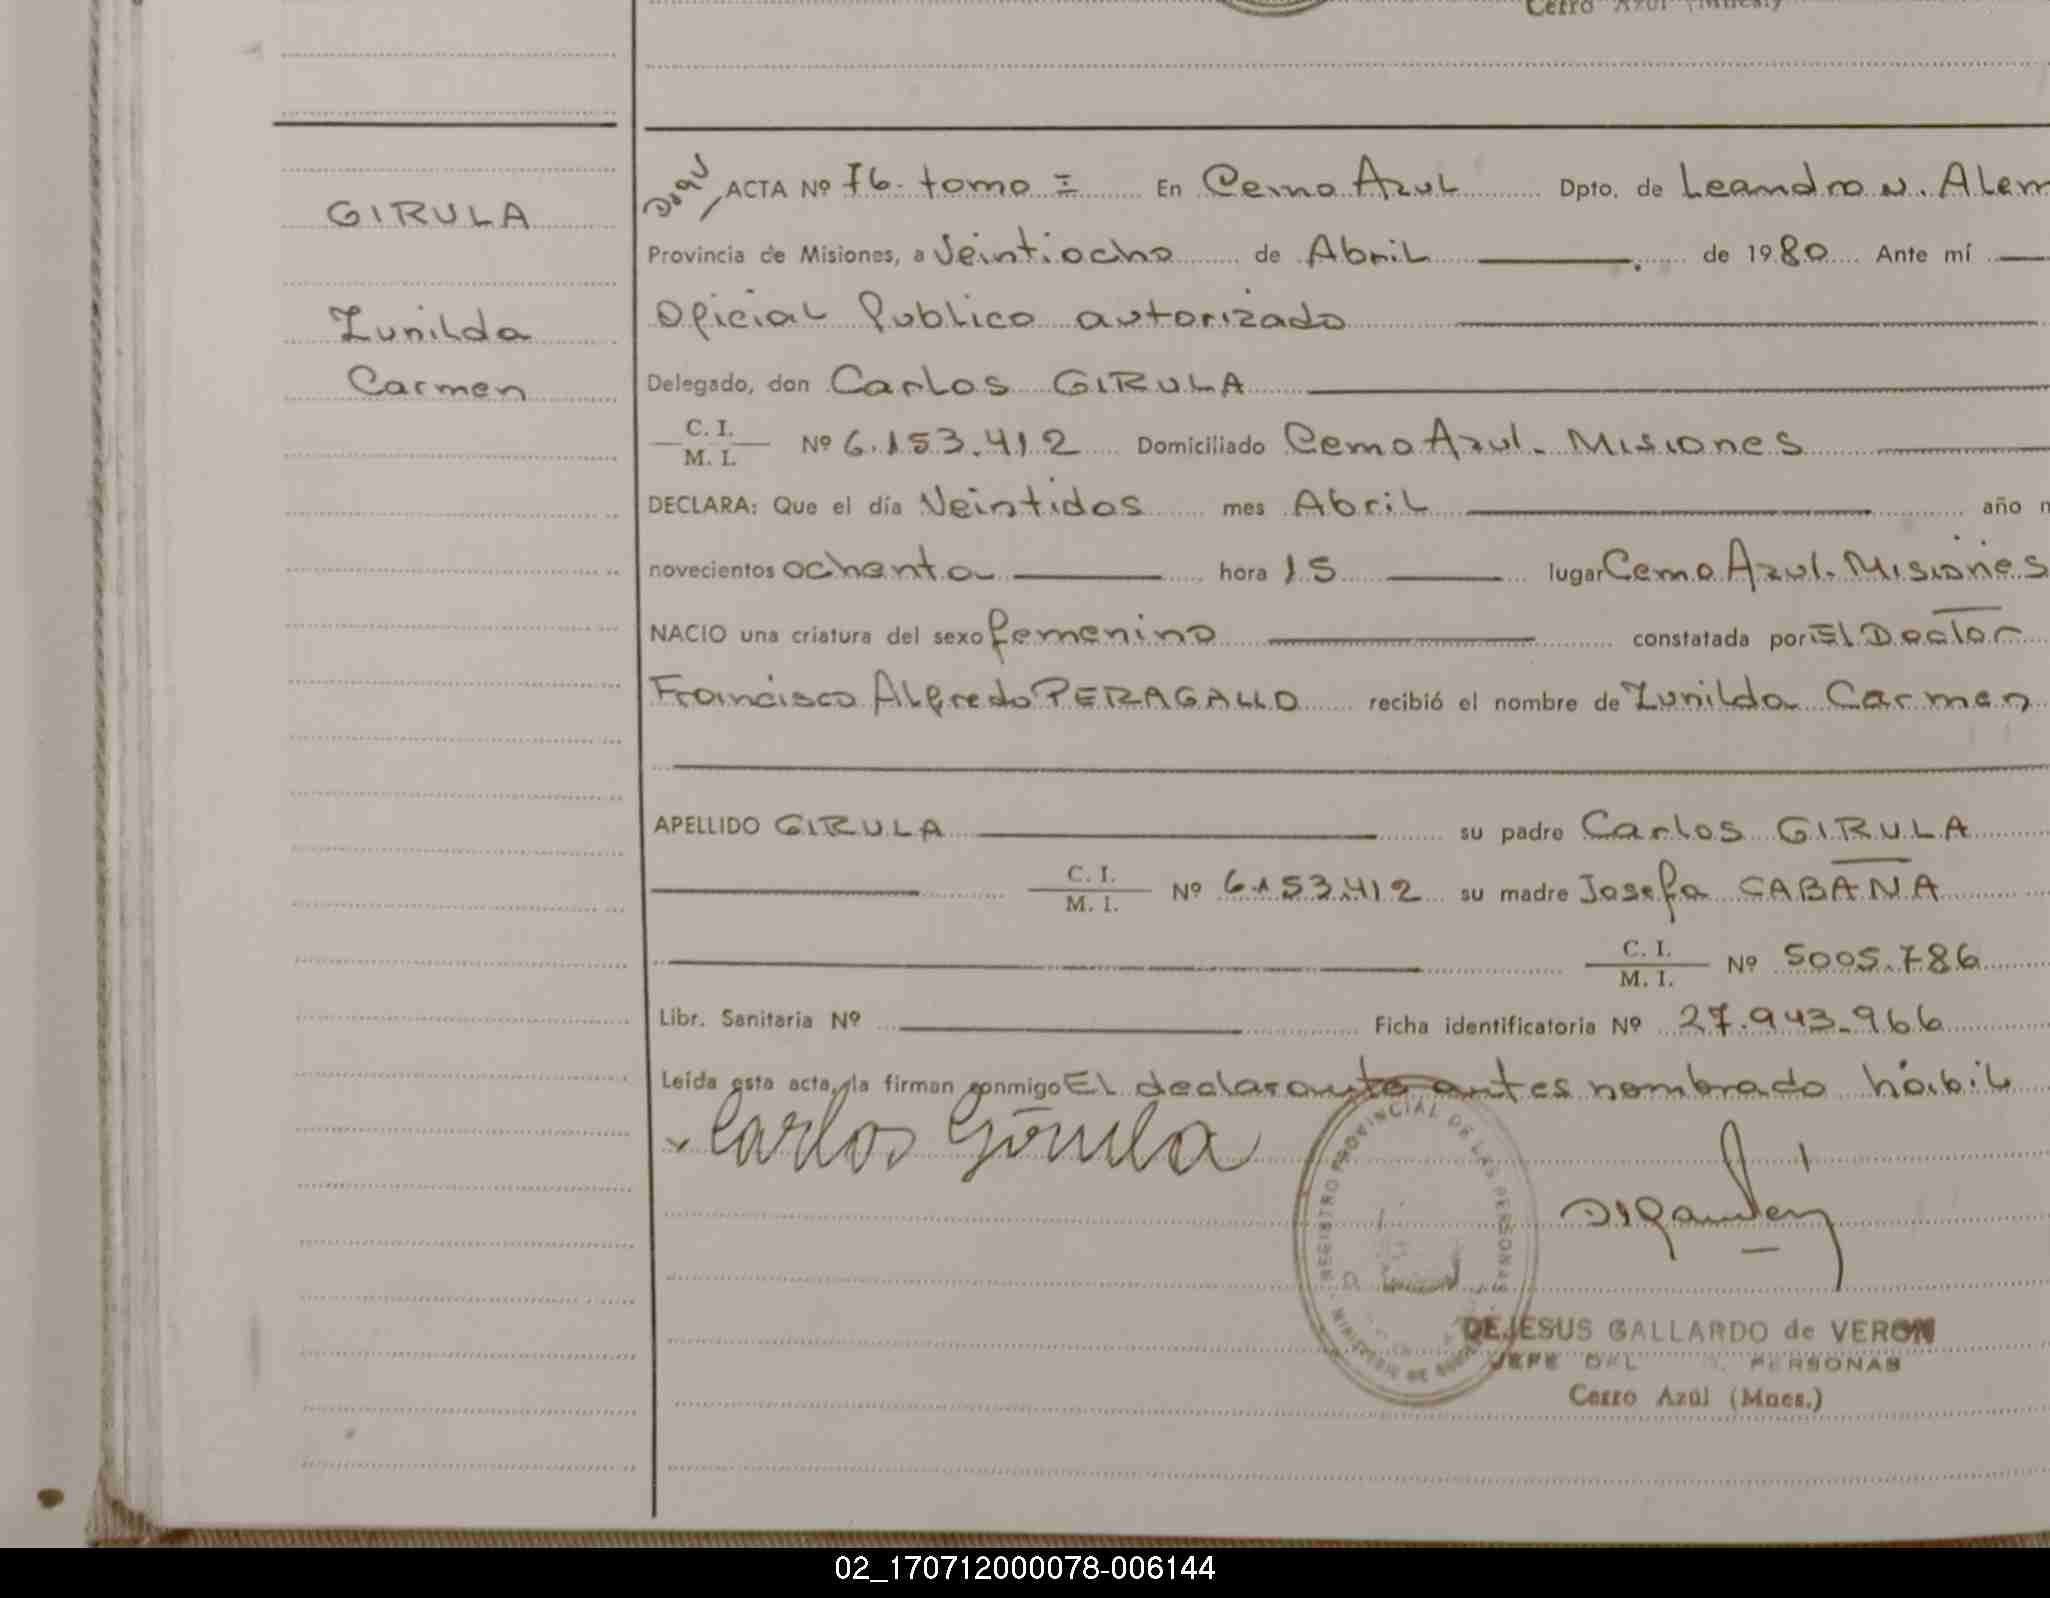 Cerro Azul (Mnes.)
GIRULA
Zunilda
Carmen
ACTA Nº 76. tomo I En Cerro Azul Dpto. de Leandro N. Alem
Provincia de Misiones, a Veintiocho de Abril de 1980 Ante mí
Oficial Publico autorizado
Delegado, don Carlos GIRULA
C. I.
M. I. Nº 6.153.412 Domiciliado Cerro Azul. Misiones
DECLARA: Que el día Veintidos mes Abril año
novecientos ochenta hora 15 lugar Cerro Azul. Misiones
NACIO una criatura del sexo femenino constatada por El Doctor
Francisco Alfredo PERAGALLO recibió el nombre de Zunilda Carmen
APELLIDO GIRULA su padre Carlos GIRULA
C. I.
M. I. Nº 6.153.412 su madre Josefa CABANA
C. I.
M. I. Nº 5005.786
Libr. Sanitaria Nº Ficha identificatoria Nº 27.943.966
Leída esta acta, la firman conmigo El declarante antes nombrado hábil
Carlos Girula
REGISTRO PROVINCIAL DE LAS PERSONAS
MINISTERIO DE
DEJESUS GALLARDO de VERON
JEFE DEL PERSONAS
Cerro Azúl (Mnes.)
02_170712000078-006144